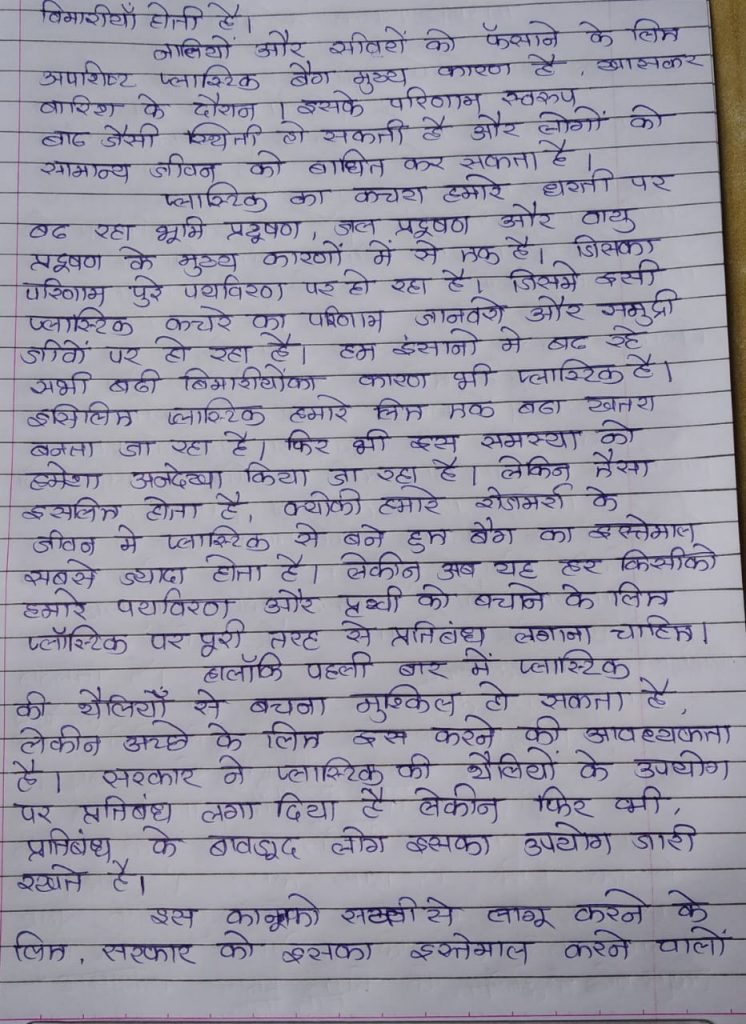 बिमारीयाँ होती है।
नालियों और सीवरों को फॅसाने के लिए
अपशिष्ट प्लास्टिक बैग मुख्य कारण है, खासकर
बारिश के दौरान। इसके परिणाम स्वरूप
बाढ जैसी स्थिती हो सकती है और लोगों को
सामान्य जीवन को बाधित कर सकता है।
प्लास्टिक का कचरा हमारे धरती पर
बढ रहा भूमि प्रदूषण, जल प्रदूषण और वायु
प्रदूषण के मुख्य कारणों में से एक है। जिसका
परिणाम पुरे पर्यावरण पर हो रहा है। जिसमे इसी
प्लास्टिक कचरे का परिणाम जानवरो और समुद्री
जीवों पर हो रहा है। हम इंसानो मे बढ रहे
सभी बढी बिमारीयोंका कारण भी प्लास्टिक है।
इसिलिए प्लास्टिक हमारे लिए एक बढा खतरा
बनता जा रहा है। फिर भी इस समस्या को
हमेशा अनदेखा किया जा रहा है। लेकिन ऐसा
इसलिए होता है, क्योकी हमारे रोजमर्रा के
जीवन मे प्लास्टिक से बने हुए बैग का इस्तेमाल
सबसे ज्यादा होता है। लेकीन अब यह हर किसीको
हमारे पर्यावरण और पृथ्वी को बचाने के लिए
प्लॉस्टिक पर पूरी तरह से प्रतिबंध लगाना चाहिए।
हालॉकि पहली बार में प्लास्टिक
की थैलियों से बचना मुश्किल हो सकता है,
लेकीन अच्छे के लिए इस करने की आवश्यकता
है। सरकार ने प्लास्टिक की थैलियों के उपयोग
पर प्रतिबंध लगा दिया है लेकीन फिर भी,
प्रतिबंध के बावजूद लोग इसका उपयोग जारी
रखते है।
इस कानूको सख्तीसे लागू करने के
लिए, सरकार को इसका इस्तेमाल करने वालों